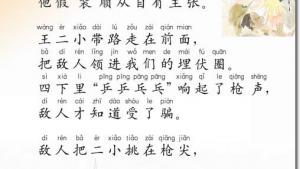 他假装顺从自有主张。
wáng èr xiǎo dài lù zǒu zài qián mian
王二小带路走在前面，
bǎ dí rén lǐng jìn wǒ men de mái fú quān
把敌人领进我们的埋伏圈。
sì xià li pīng pīng pāng pāng xiǎng qǐ le qiāng shēng
四下里“乒乒乓乓”响起了枪声，
dí rén cái zhī dào shòu le piàn
敌人才知道受了骗。
dí rén bǎ èr xiǎo tiāo zài qiāng jiān
敌人把二小挑在枪尖，